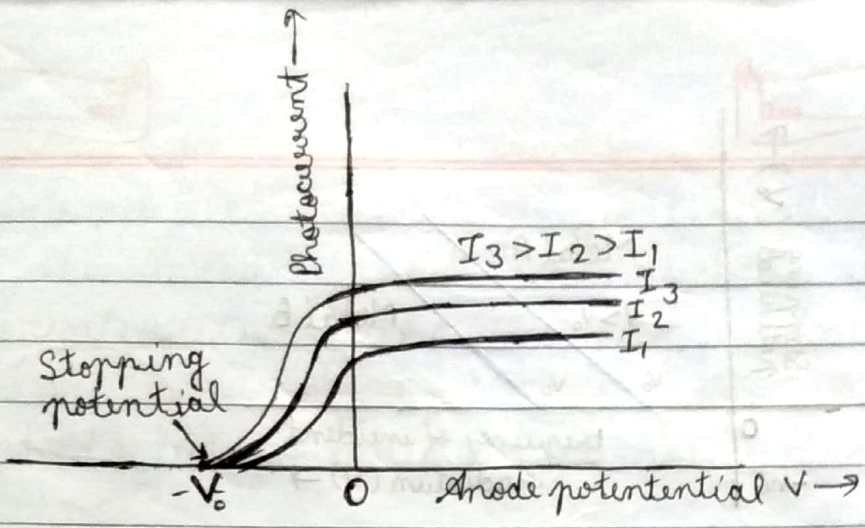 Photocurrent →
I₃ > I₂ > I₁
I₃
I₂
I₁
Stopping
potential
-V₀
O
Anode potentential V →